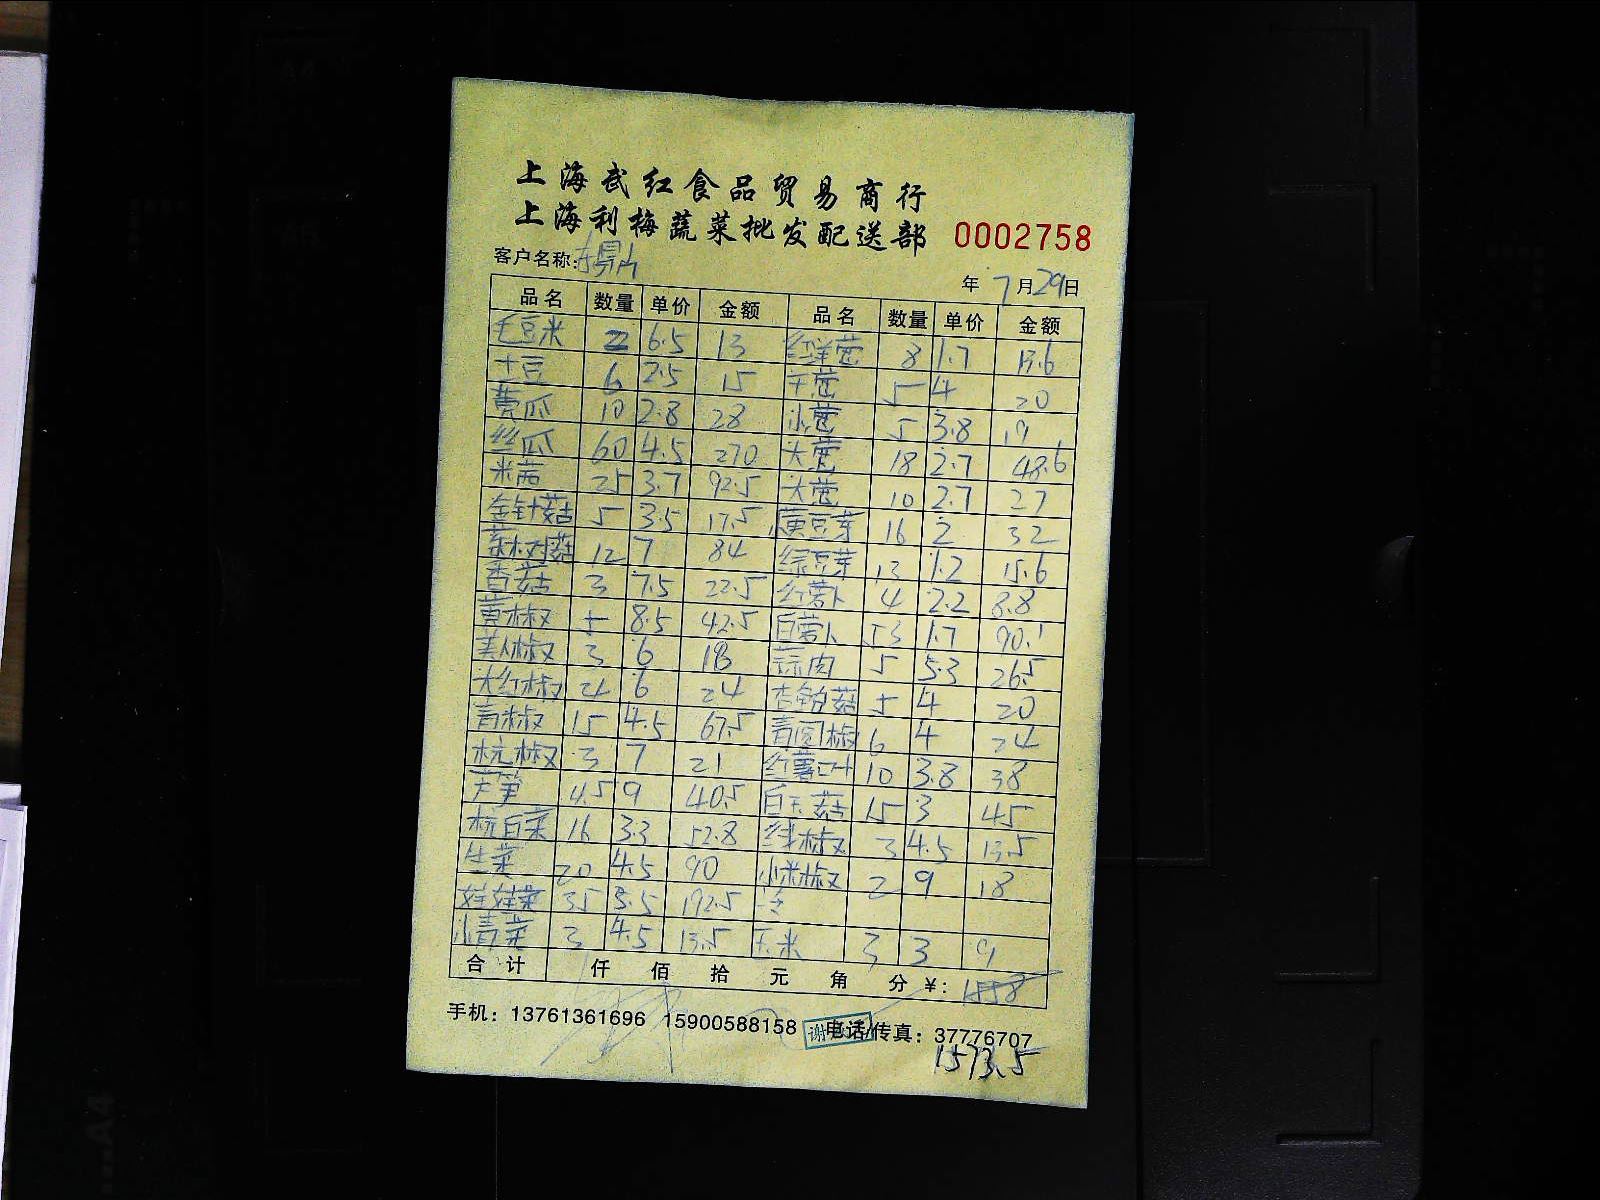 上海武红食品贸易商行
上海利梅蔬菜批发配送部 0002758
客户名称:
年 7月29日
品名 数量 单价 金额 品名 数量 单价 金额
毛豆米 2 6.5 13 红洋葱 8 1.7 13.6
土豆 6 2.5 15 干葱 5 4 20
黄瓜 10 2.8 28 小葱 5 3.8 19
丝瓜 60 4.5 270 大葱 18 2.7 48.6
米茄 25 3.7 92.5 大葱 10 2.7 27
金针菇 5 3.5 17.5 黄豆芽 16 2 32
茶树菇 12 7 84 绿豆芽 13 1.2 15.6
香菇 3 7.5 22.5 红萝卜 4 2.2 8.8
黄椒 5 8.5 42.5 白萝卜 53 1.7 90.1
美人椒 3 6 18 蒜肉 5 5.3 26.5
大红椒 4 6 24 杏鲍菇 5 4 20
青椒 15 4.5 67.5 青圆椒 6 4 24
杭椒 3 7 21 红薯叶 10 3.8 38
芦笋 4.5 9 40.5 白玉菇 15 3 45
杭白菜 16 3.3 52.8 线椒 3 4.5 13.5
生菜 20 4.5 90 小米椒 2 9 18
娃娃菜 35 5.5 192.5
小青菜 3 4.5 13.5 玉米 3 3 9
合计 仟 佰 拾 元 角 分 ¥: 1558
手机: 13761361696 15900588158 电话/传真: 37776707
1573.5